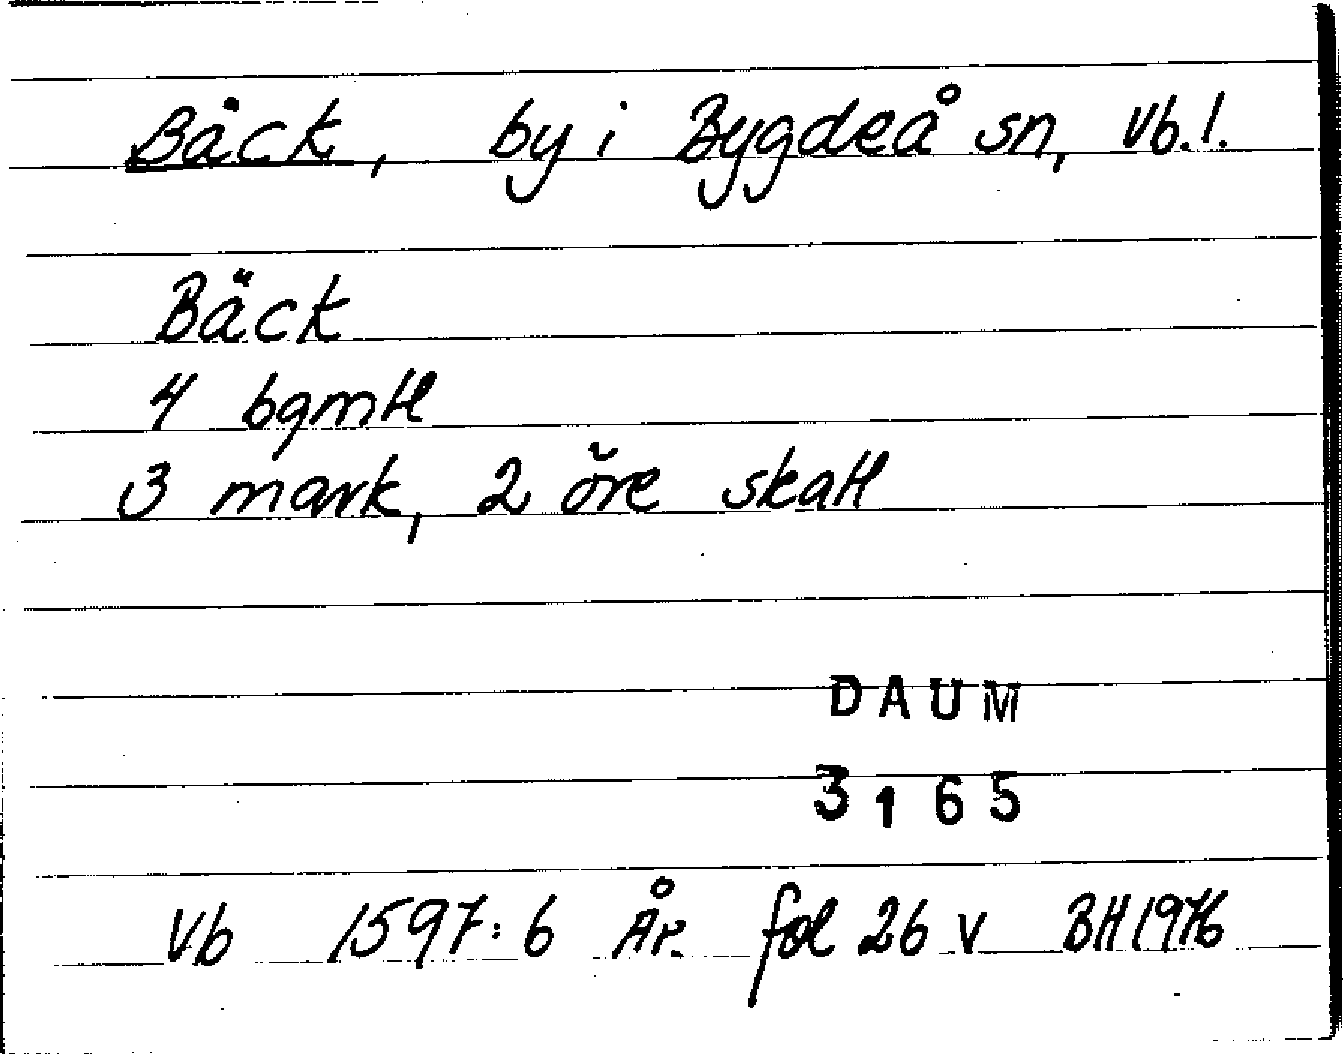 Bäck, by i Bygdeå sn, Vb.l.
Bäck
4 bgmtl
3 mark, 2 öre skatt
DAUM
3165
Vb 1597:6 År. fol 26 v BH 1976